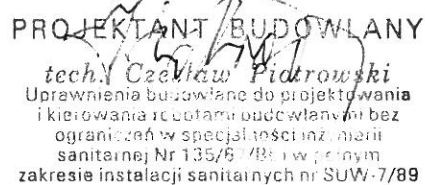 PROJEKTANT BUDOWLANY
tech. Czesław Piotrowski
Uprawnienia budowlane do projektowania
i kierowania robotami budowlanymi bez
ograniczeń w specjalności inż. inierii
sanitarnej Nr i w pełnym
zakresie instalacji sanitarnych nr SUW-7/89